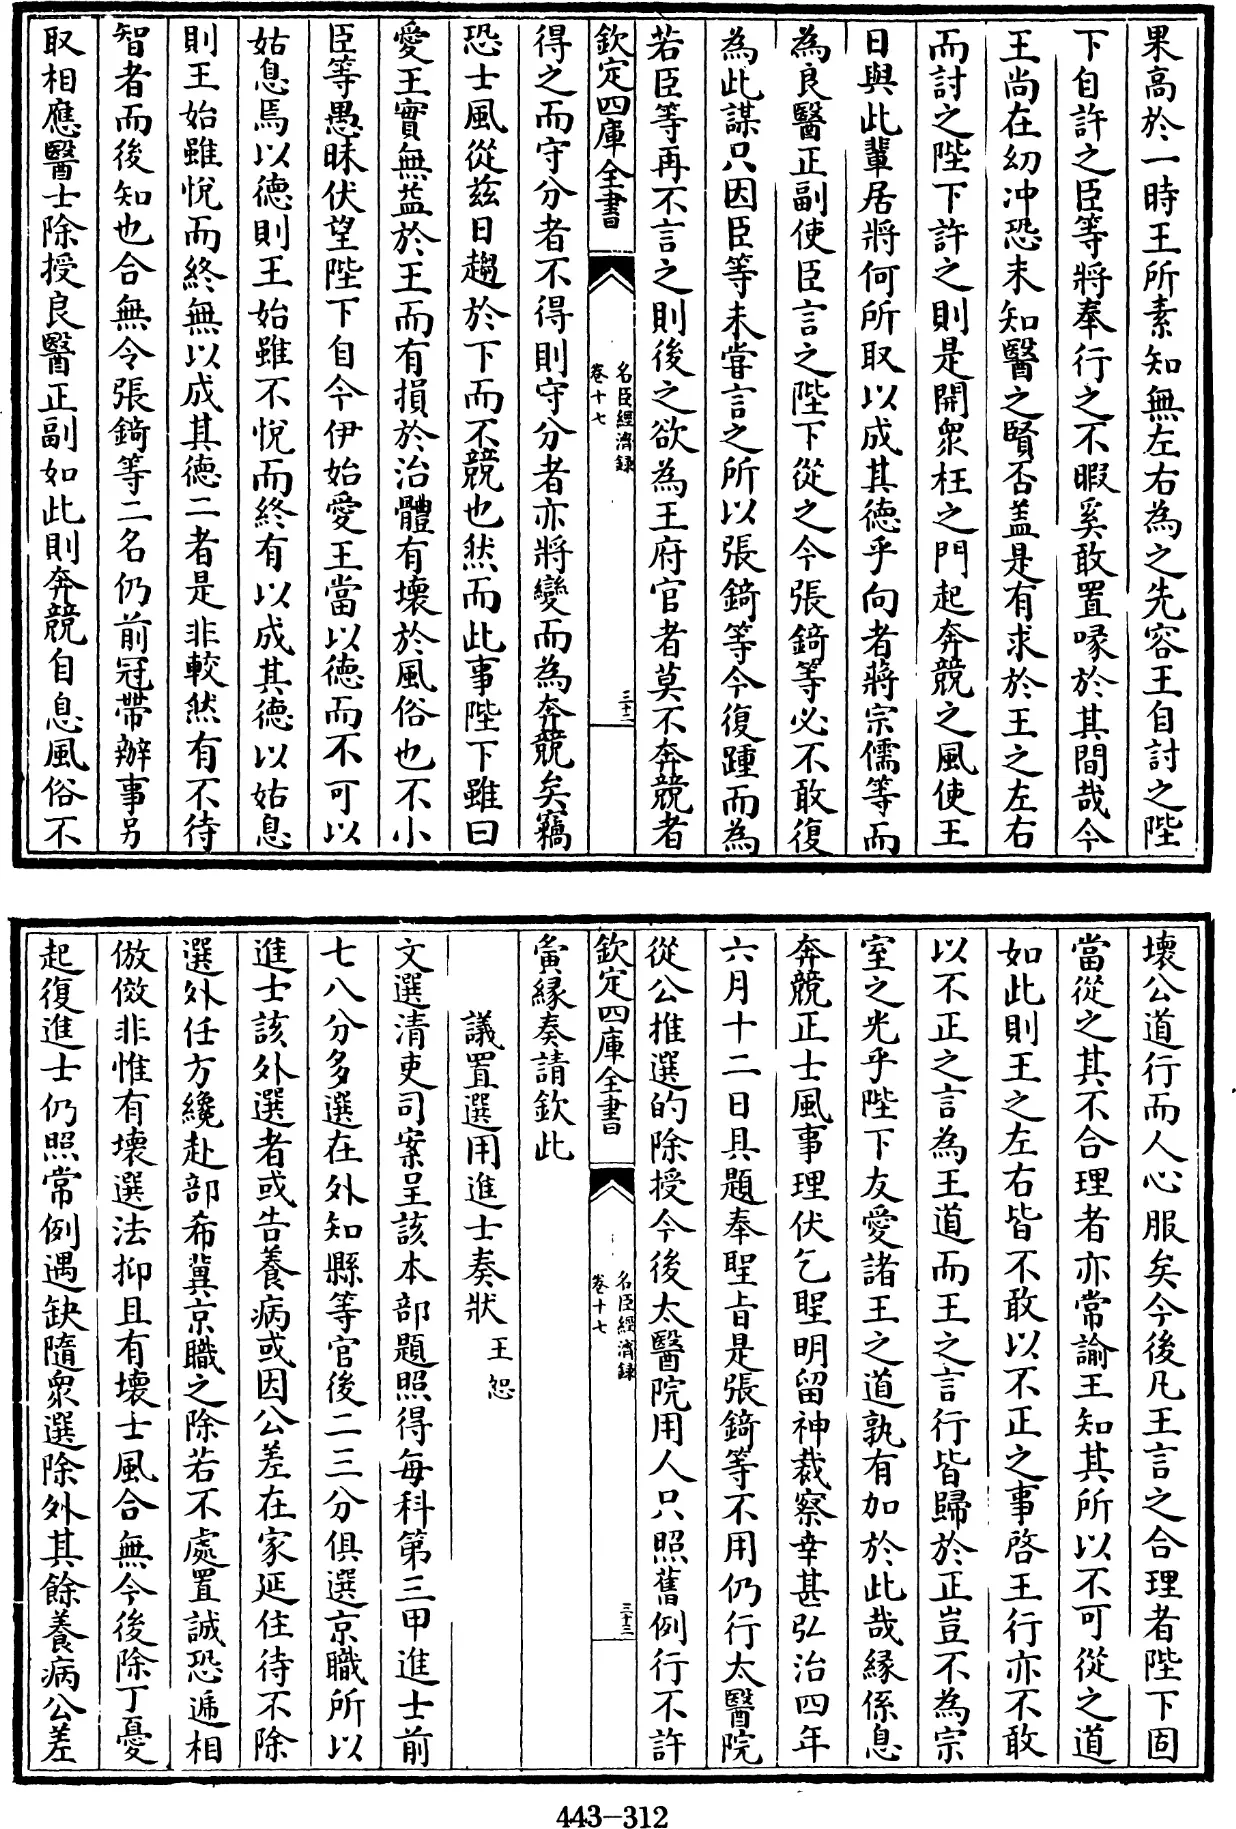 果高於一時王所素知無左右為之先容王自討之陛
下自許之臣等將奉行之不暇奚敢置喙於其間哉今
王尚在幼冲恐未知醫之賢否盖是有求於王之左右
而討之陛下許之則是開衆枉之門起奔競之風使王
日與此輩居將何所取以成其德乎向者蔣宗儒等而
為良醫正副使臣言之陛下從之今張錡等必不敢復
為此謀只因臣等未嘗言之所以張錡等今復踵而為
若臣等再不言之則後之欲為王府官者莫不奔競者
欽定四庫全書
名臣經濟録
卷十七
三十二
得之而守分者不得則守分者亦將變而為奔競矣竊
恐士風從兹日趨於下而不競也然而此事陛下雖曰
愛王實無益於王而有損於治體有壞於風俗也不小
臣等愚昧伏望陛下自今伊始愛王當以德而不可以
姑息焉以德則王始雖不悅而終有以成其德以姑息
則王始雖悅而終無以成其德二者是非較然有不待
智者而後知也合無令張錡等二名仍前冠帶辦事另
取相應醫士除授良醫正副如此則奔競自息風俗不
壞公道行而人心服矣今後凡王言之合理者陛下固
當從之其不合理者亦常諭王知其所以不可從之道
如此則王之左右皆不敢以不正之事啓王行亦不敢
以不正之言為王道而王之言行皆歸於正豈不為宗
室之光乎陛下友愛諸王之道孰有加於此哉緣係息
奔競正士風事理伏乞聖明留神裁察幸甚弘治四年
六月十二日具題奉聖旨是張錡等不用仍行太醫院
從公推選的除授今後太醫院用人只照舊例行不許
欽定四庫全書
名臣經濟録
卷十七
三十三
夤緣奏請欽此
議置選用進士奏狀 王恕
文選清吏司案呈該本部題照得每科第三甲進士前
七八分多選在外知縣等官後二三分俱選京職所以
進士該外選者或告養病或因公差在家延住待不除
選外任方纔赴部希冀京職之除若不處置誠恐遞相
倣傚非惟有壞選法抑且有壞士風合無今後除丁憂
起復進士仍照常例遇缺隨衆選除外其餘養病公差
443-312